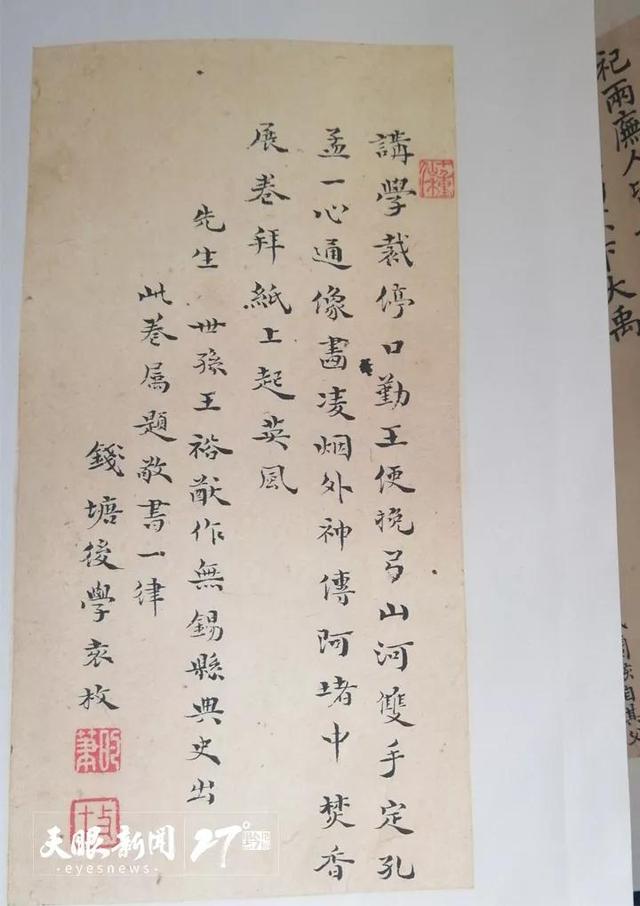 祀兩廡人
大禹
講學裁停口勤王便挽弓山河雙手定孔
孟一心通像畫凌烟外神傳阿堵中焚香
展卷拜紙上起英風
先生 世孫王裕猷作無錫縣典史出
此卷屬題敬書一律
錢塘後學袁枚
天眼新闻 27°
eyesnews